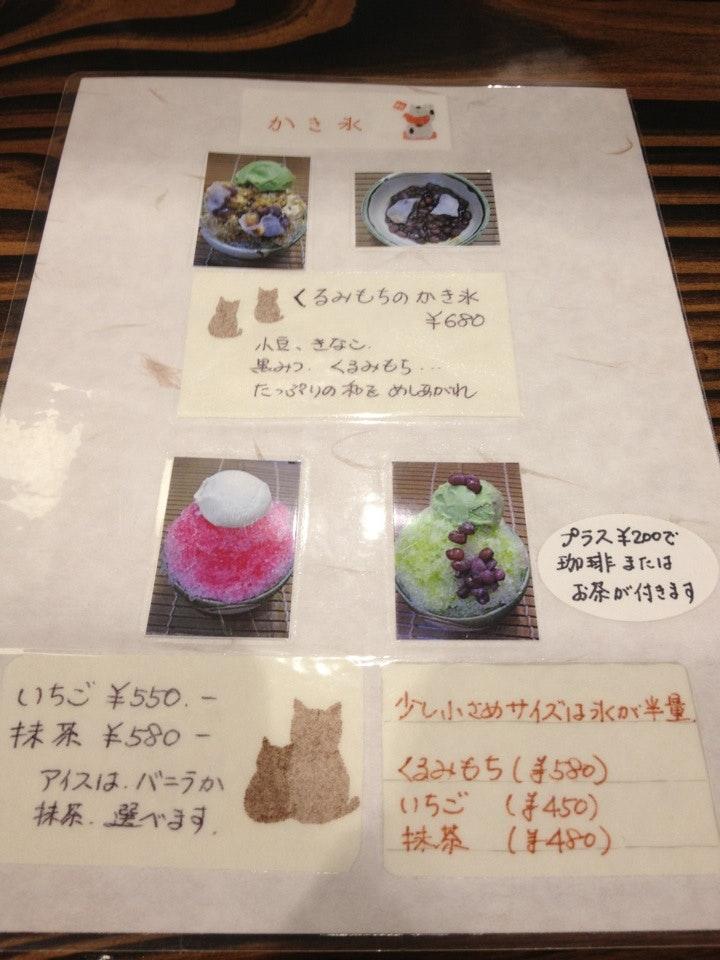 かき氷
くるみもちのかき氷
¥680
小豆、きなこ.
黒みつ. くるみもち...
たっぷりの和を めしあがれ
プラス¥200で
珈琲または
お茶が付きます
いちご ¥550.-
抹茶 ¥580-
アイスは. バニラか
抹茶. 選べます.
少し小さめサイズは氷が半量.
くるみもち(¥580)
いちご (¥450)
抹茶 (¥480)